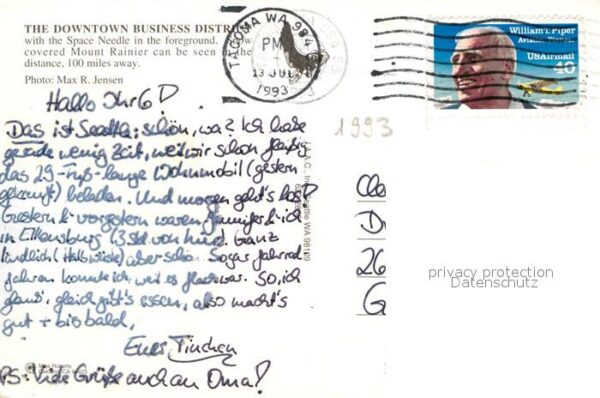 THE DOWNTOWN BUSINESS DISTR
with the Space Needle in the foreground.
covered Mount Rainier can be seen in the
distance, 100 miles away.
Photo: Max R. Jensen
TACOMA WA 984
PM
13 JUL
1993
William T. Piper
Aviation
USAirmail
40
1993
Hallo Ihr 6
Das ist Seattle: schön, wa? Ich habe
gerade wenig Zeit, weil wir schon fleißig
das 29-Fuß-lange Wohnmobil (gestern
gekauft) beladen. Und morgen geht's los
Gestern & vorgestern waren Jennifer & ich
in Ellensburg (3 Std. von hier). Ganz
ländlich (Halbwüste) aber schön. Sogar fahrrad
fahren konnte ich, weil es flach war. So, ich
glaub, gleich gibt's essen, also macht's
gut + bis bald,
Eure Tinchen
PS: Viele Grüße auch an Oma!
Seattle WA 98169
D
26
G
privacy protection
Datenschutz